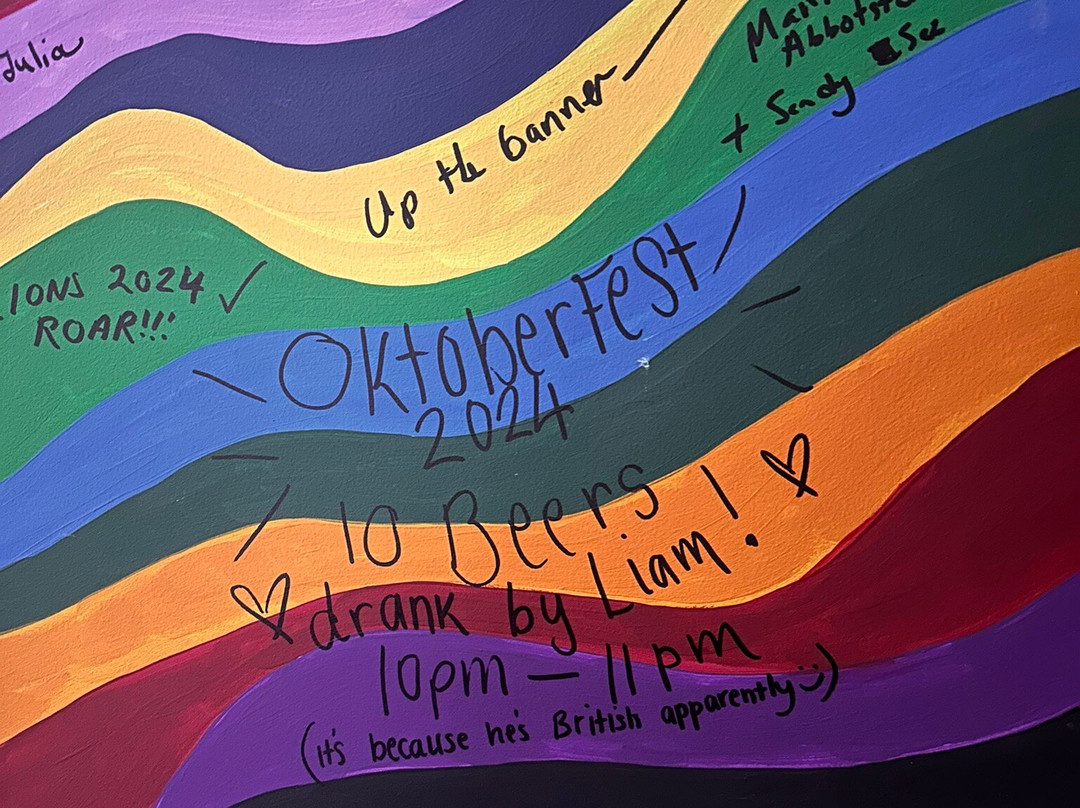 Julia
Up the banner
+ Sandy
IONS 2024
ROAR!!!
Oktoberfest
2024
10 Beers
drank by Liam!
10pm – 11pm
(it's because he's British apparently :))